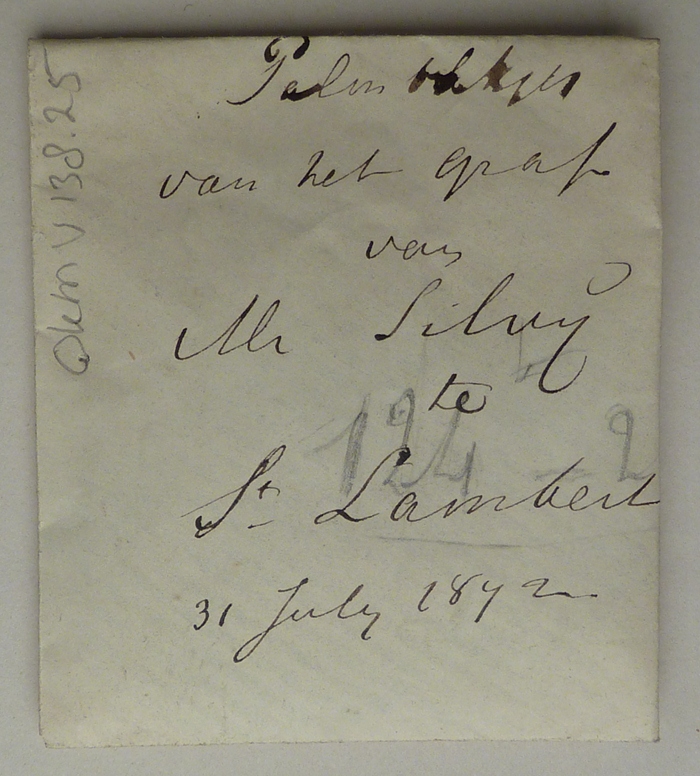 Palm takjes
van het graf
van
Mr Silvy
te
St Lambert
31 July 1872
124 - 2
OKM V 138.25